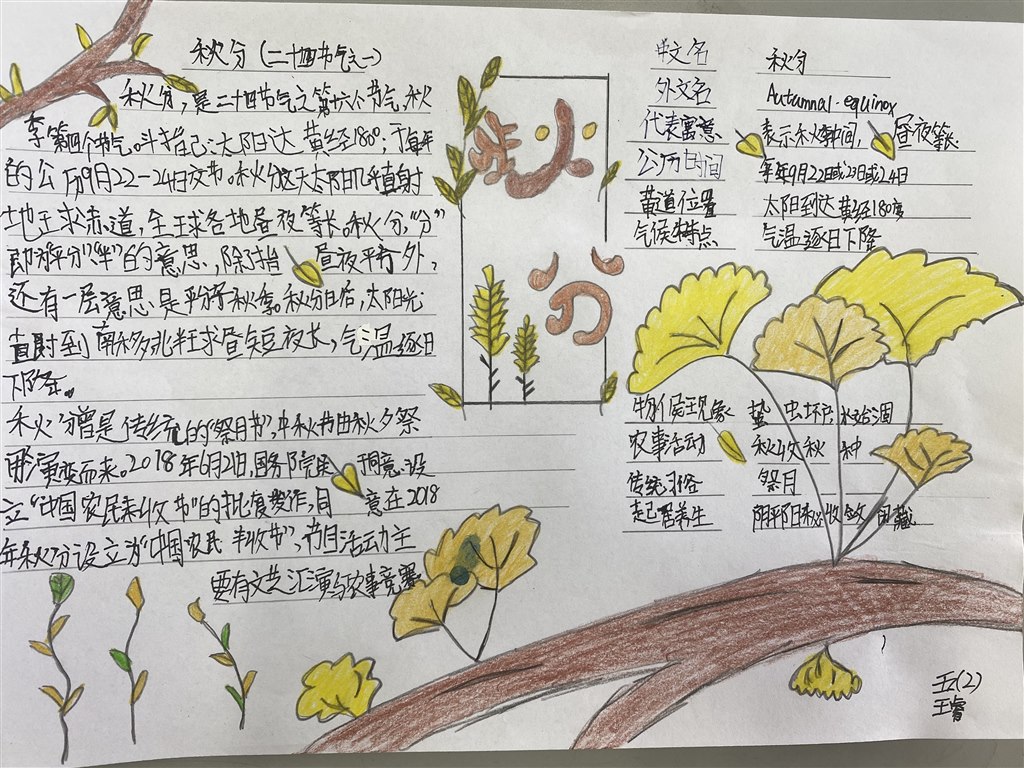 秋分(二十四节气之一)
秋分,是二十四节气之第十六个节气,秋
季第四个节气。斗指己;太阳达黄经180°;于每年
的公历9月22-24日交节。秋分这天太阳几乎直射
地球赤道,全球各地昼夜等长。秋分,“分”
即“平分”“半”的意思,除了指昼夜平分外,
还有一层意思是平分了秋季。秋分日后,太阳光
直射到南移多北半球昼短夜长,气温逐日
下降。
秋分曾是传统的“祭月节”,中秋节由秋夕祭
月演变而来。2018年6月21日,国务院同意设
立“中国农民丰收节”的批复,同意在2018
年秋分设立为“中国农民丰收节”,节目活动主
要有文艺汇演与农事竞赛
秋
分
中文名 秋分
外文名 Autumnal equinox
代表寓意 表示秋中间,昼夜等长
公历时间 每年9月22日或23日或24日
黄道位置 太阳到达黄经180度
气候特点 气温逐日下降
物候现象 蛰虫坏户,水始涸
农事活动 秋收秋种
传统习俗 祭月
起居养生 阴平阳秘收敛闭藏
五(2)
王睿